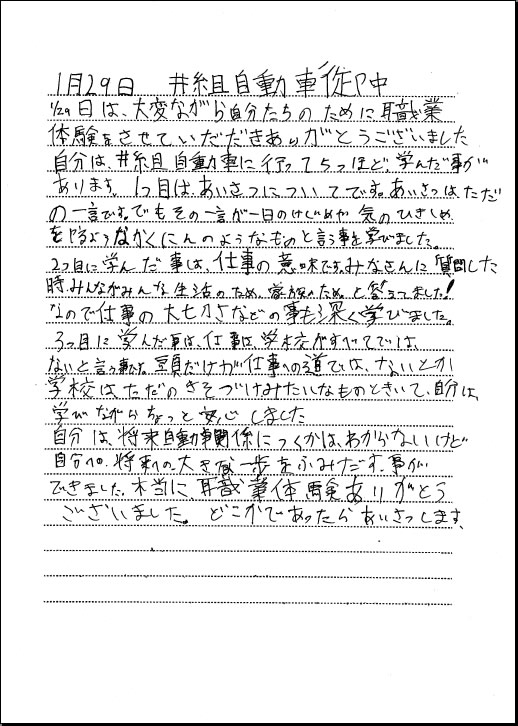 1月29日 井組自動車御中
1/29日は、大変ながら自分たちのために職業
体験をさせていただだきありがとうございました
自分は、井組自動車に行って5つほど、学んだ事が
あります。1つ目は、あいさつについてです。あいさつは、ただ
の一言です。でもその一言が一日のけじめや 気のひきしめ
をやるようなかくにんのようなものと言う事を学びました。
2つ目に学んだ事は、仕事の意味です。みなさんに質問した
時、みんながみんな生活のため、家族のため。と答えてました!
なので仕事の大七刀さなどの事も深く学びました。
3つ目に学んだ事は、仕事は、学校がすべてでは、
ないと言う事です。頭だけが仕事への道では、ないとか
学校は、ただのきそづけみたいなものときいて、自分は、
学びながらちょっと安心しました
自分は、将来自動車関係につくかは、わからないけど
自分の、将来への大きな一歩をふみだす、事が
できました。本当に職業体験ありがとう
ございました。どこかであったらあいさつします、